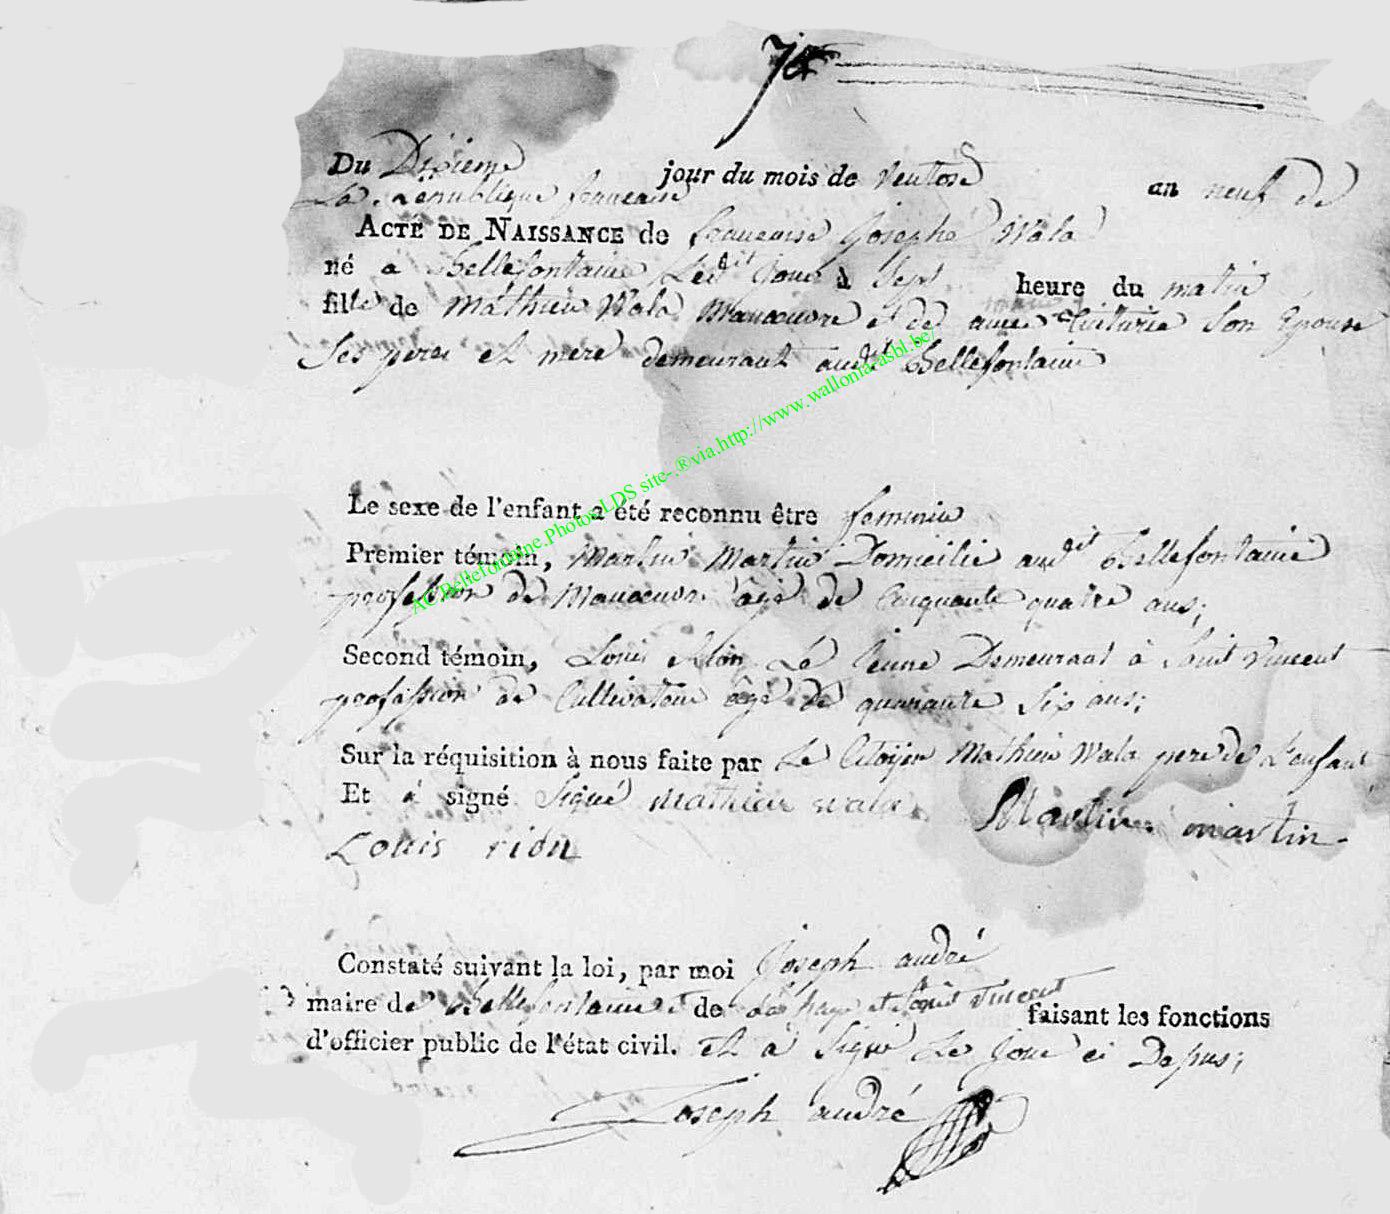 7e
Du Dixieme jour du mois de ventose an neuf de
La République francaise
ACTE DE NAISSANCE de francaise Josephe Wala
né a Bellefontaine Ledit Jour à Sept heure du matin
fille de Mathieu Wala Manœuvre et de marie Son Epouse
Ses pere et mere demeurant audit Bellefontaine
Le sexe de l'enfant a été reconnu être feminin
Premier témoin, Martin Martin Domicilié audit Bellefontaine
profession de Manœuvre âgé de Cinquante quatre ans;
Second témoin, Louis Rion Le Jeune Demeurant à Saint Vincent
profession de Cultivateur âgé de quarante Six ans;
Sur la réquisition à nous faite par Le Citoyen Mathieu Wala pere de L'enfant
Et à signé Signé mathieu wala Martin martin
Louis rion
Constaté suivant la loi, par moi Joseph andré
maire de Bellefontaine et de La haye et Saint Vincent faisant les fonctions
d'officier public de l'état civil. et a Signé Le Jour ci Depus;
Joseph andré
AC Bellefontaine.Photos LDS site-.®via.http://www.walloniarasbl.be/